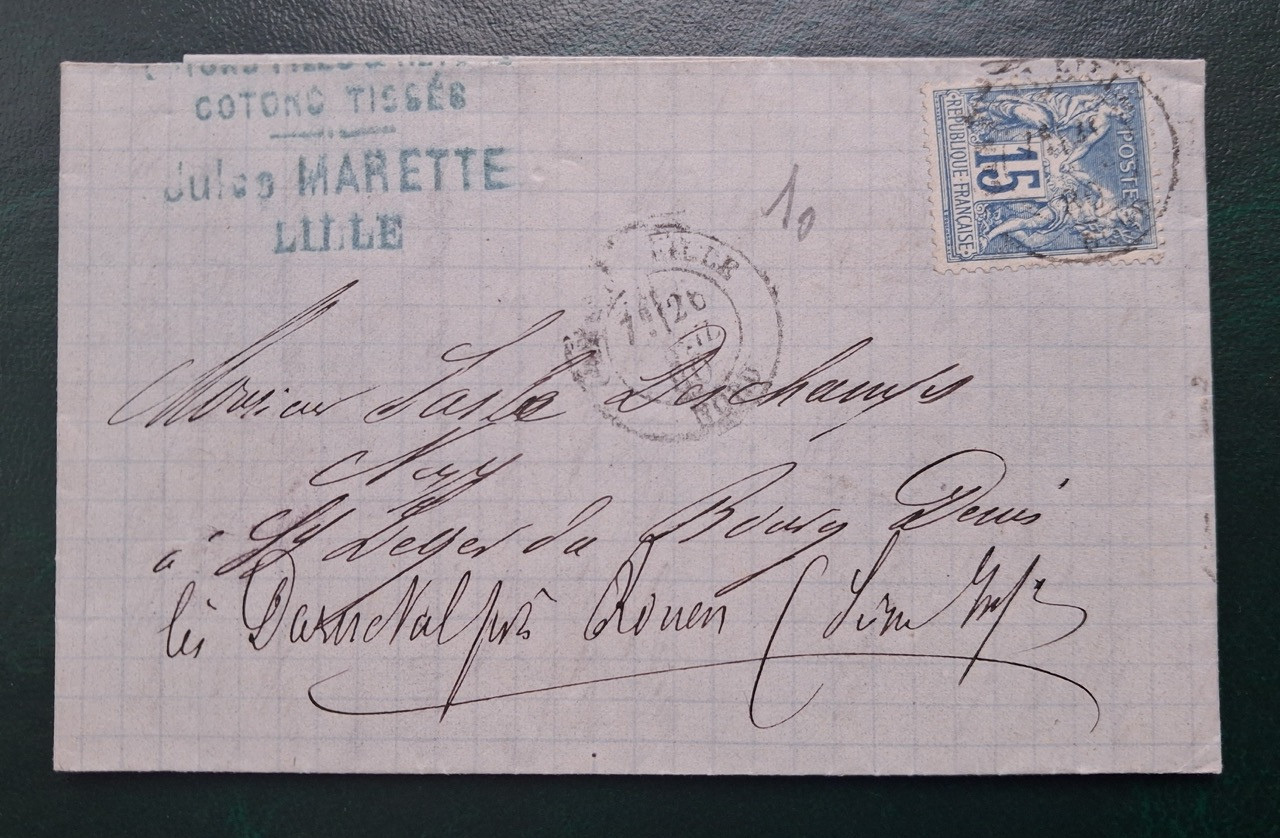 COTONS TISSÉS
Jules MARETTE
LILLE
10
POSTE
15
REPUBLIQUE FRANÇAISE
LILLE
26
NORD
Monsieur Deschamps
à St Leger du Bourg Denis
lès Darnetal près Rouen (Seine Infre